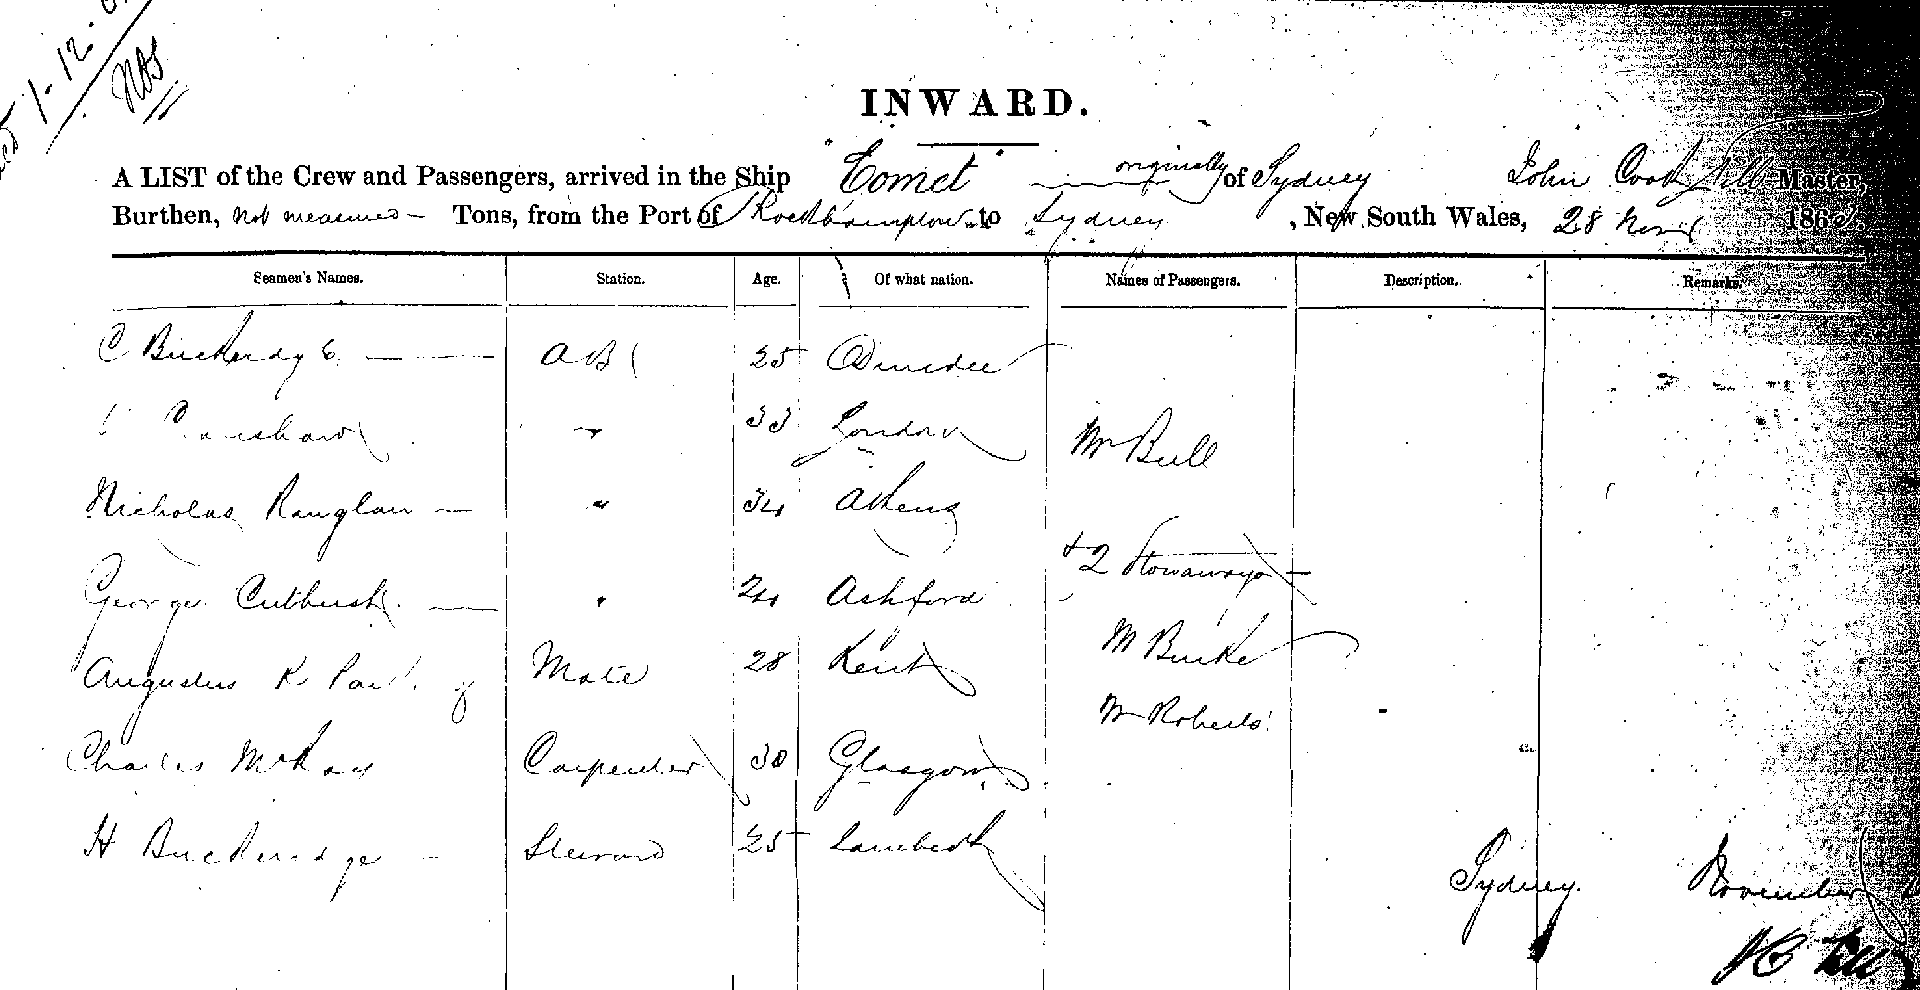 1-12-6
INWARD.
A LIST of the Crew and Passengers, arrived in the Ship "Comet" originally of Sydney John Cook Hill Master,
Burthen, not measured - Tons, from the Port of Rockhampton to Sydney, New South Wales, 28 Novr 186
Seamen's Names. Station. Age. Of what nation. Names of Passengers. Description. Remarks.
C Buckeridge AB 25 Dundee
" 33 London Mr Bull
Nicholas " 34 Athens
+ 2 Stowaways
George Cutbush " 24 Ashford
M Burke
Augustus R Mate 28 Kent
Mr Roberts
Charles McKay Carpenter 30 Glasgow
H Buckeridge Steward 25 Lambeth
Sydney. November
J C Hill